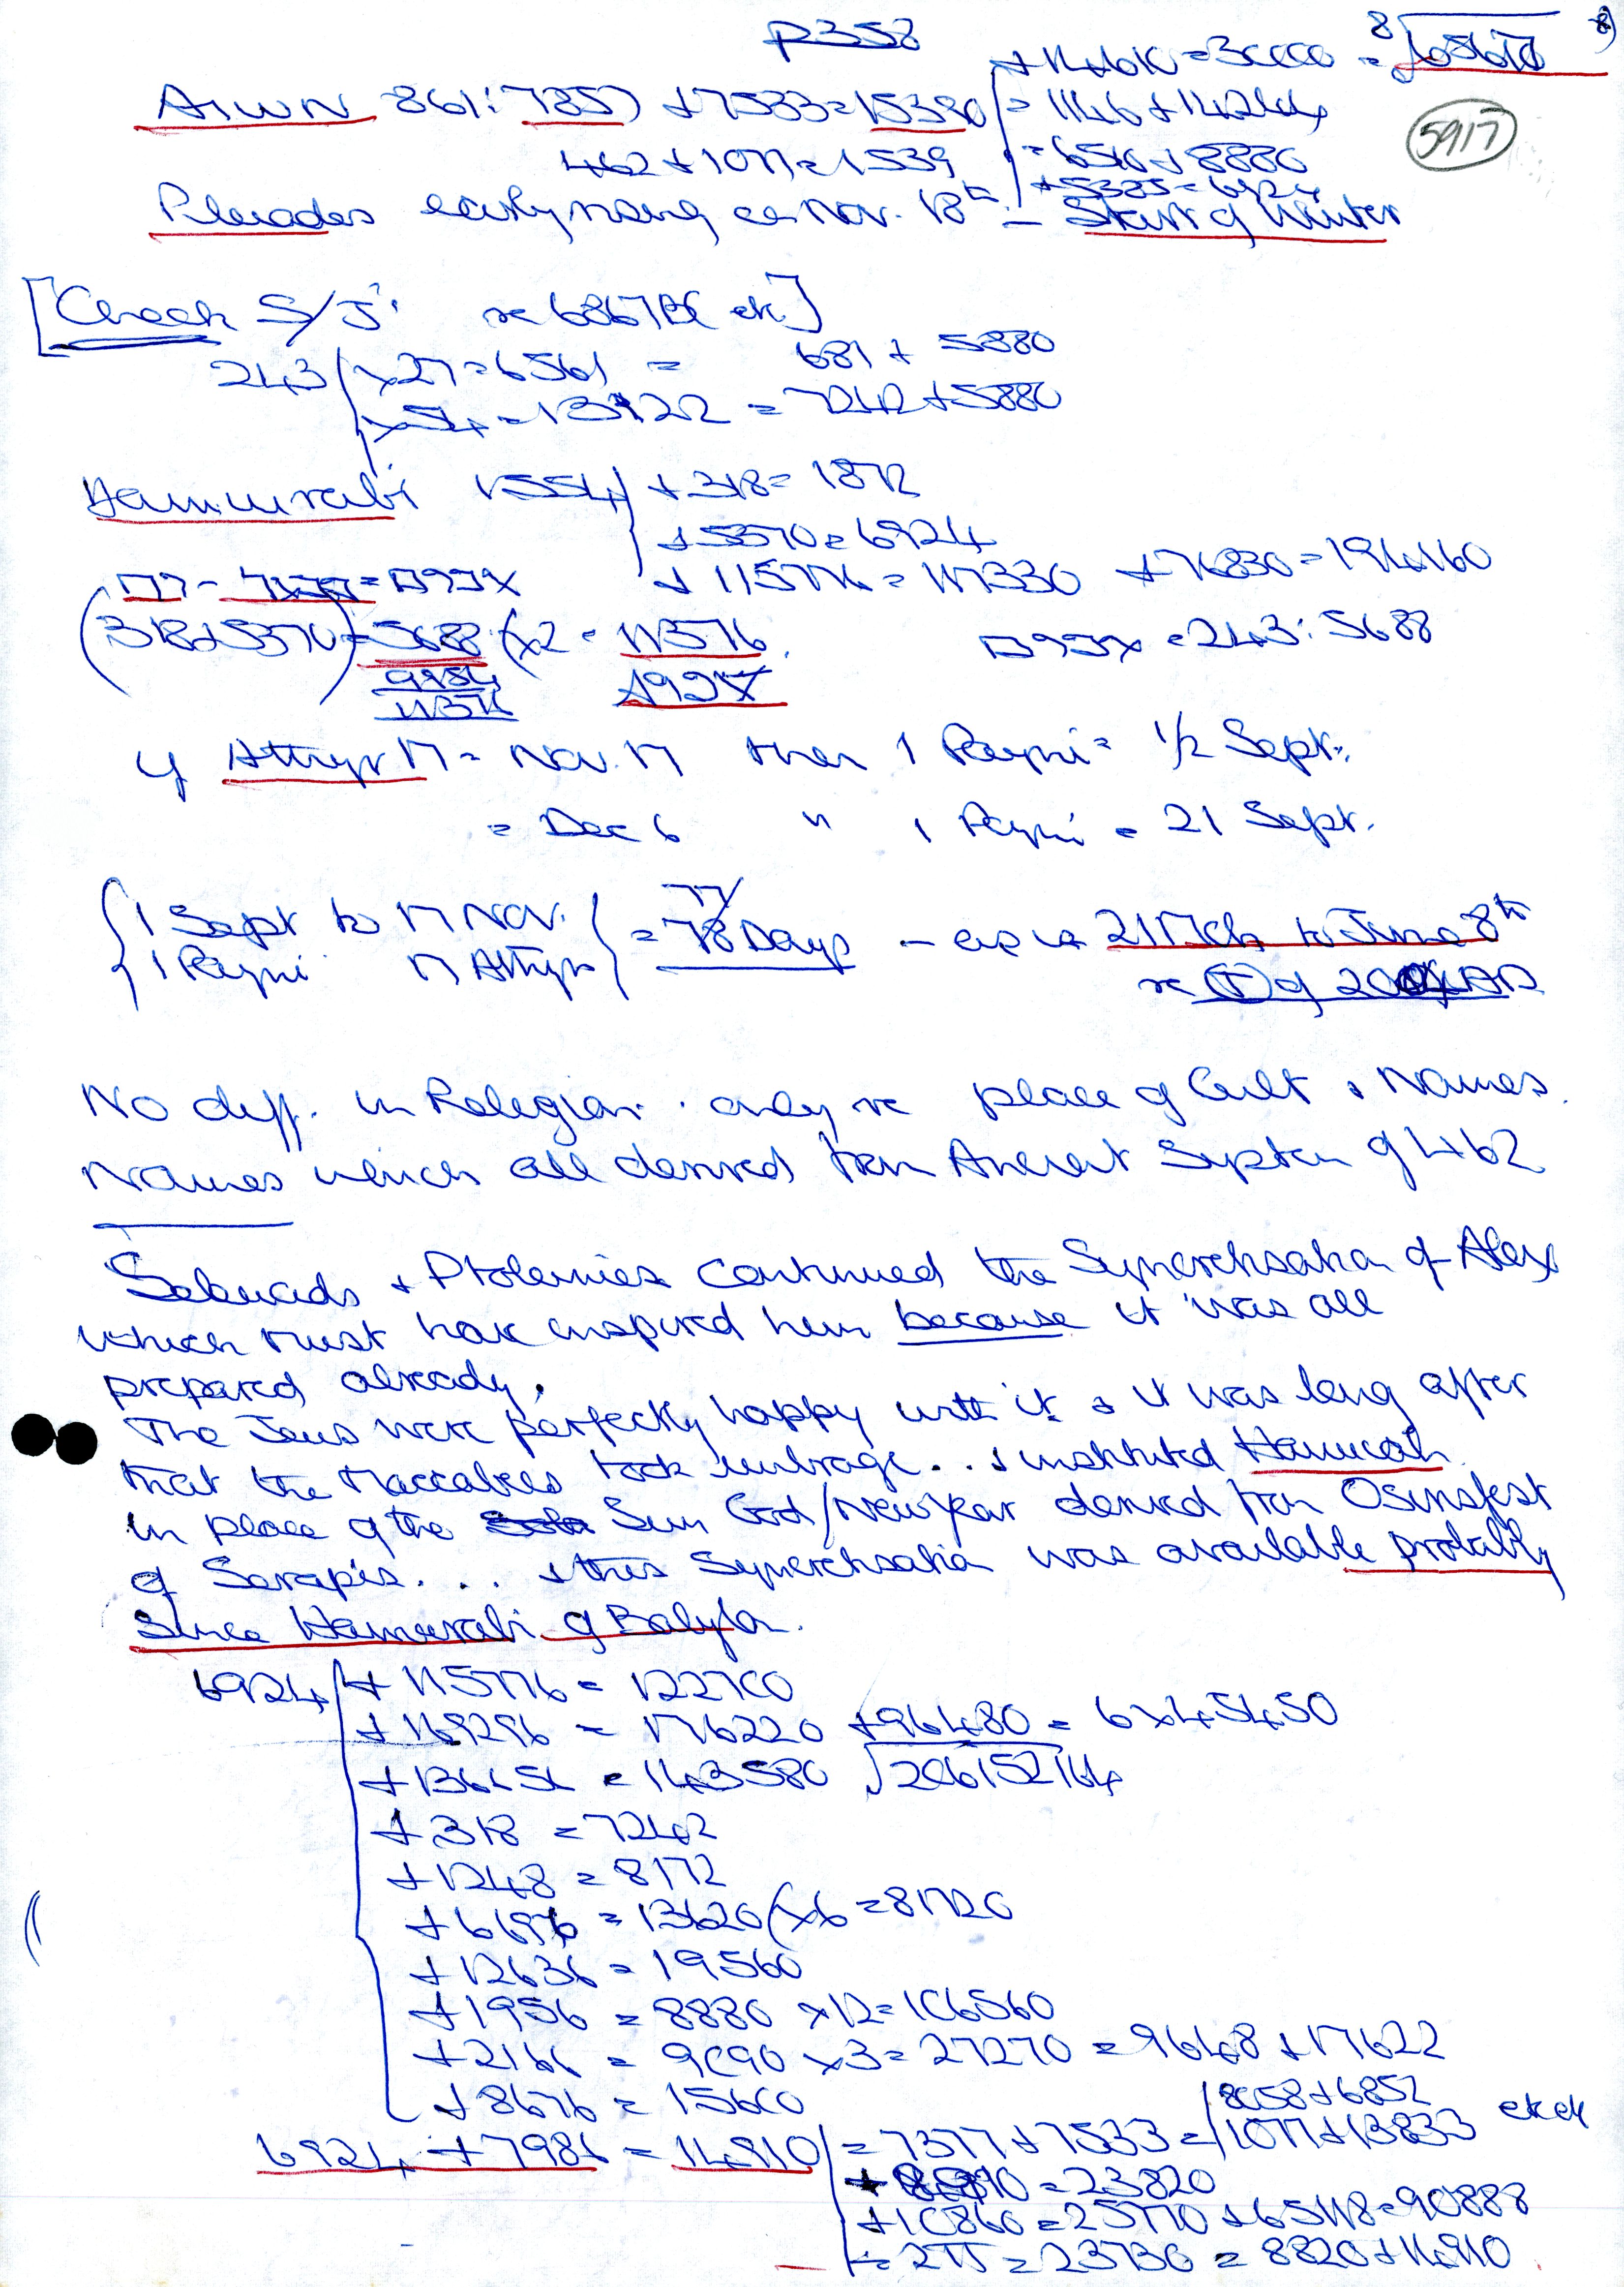 p358
8)
+14610=30000 = 8√65610
5917
AIWN 861:7857 +7533=15390 = 1146+14244
462+1077=1539 = 6510+8880
+5385=6924
Pleiades early rising ca Nov. 18th = Start of Winter
[Check S/J re 6867BC etc]
243 x27=6561 = 681 + 5880
x54=13122 = 7242+5880
Hammurabi 1554 +318= 1872
+5370=6924
+ 115776= 117330 +76830=194160
(318+5370)=5688 (x2 = 11376.
=243:5688
9984
11376
If Athyr 17= Nov. 17 then 1 Payni= 1/2 Sept.
= Dec 6 " 1 Payni = 21 Sept.
1 Sept to 17 Nov.
1 Payni 17 Athyr = 77/78 Days - as is 21 Mch to June 8th
re (T) of 2004AD
No diff. in Religion. only re place of Cult & Names.
Names which all derived from Ancient System of 462
Seleucids & Ptolemies continued the Syncretisation of Alex
which must have inspired him because it was all
prepared already.
The Jews were perfectly happy with it & it was long after
that the Maccabees took umbrage... & instituted Hanucah
in place of the Sun God/New Year derived from Osirisfest
of Sarapis.... & this Syncretisation was available probably
since Hamurabi of Babylon.
6924 + 115776 = 122700
+169296 = 176220 +96480 = 6x45450
+136656 = 143580 √206152164
+318 = 7242
+1248 = 8172
+6696 = 13620 (x6 =81720
+12636 = 19560
+1956 = 8880 x12=106560
+2166 = 9090 x3= 27270 = 9648 +17622
+8676 = 15600
8058+6852
6924 +7986 = 14910 = 7377+7533 = 1077+13833 etc etc
+ 8910 =23820
+10860=25770 +65118=90888
÷2π=23730 = 8820+14910